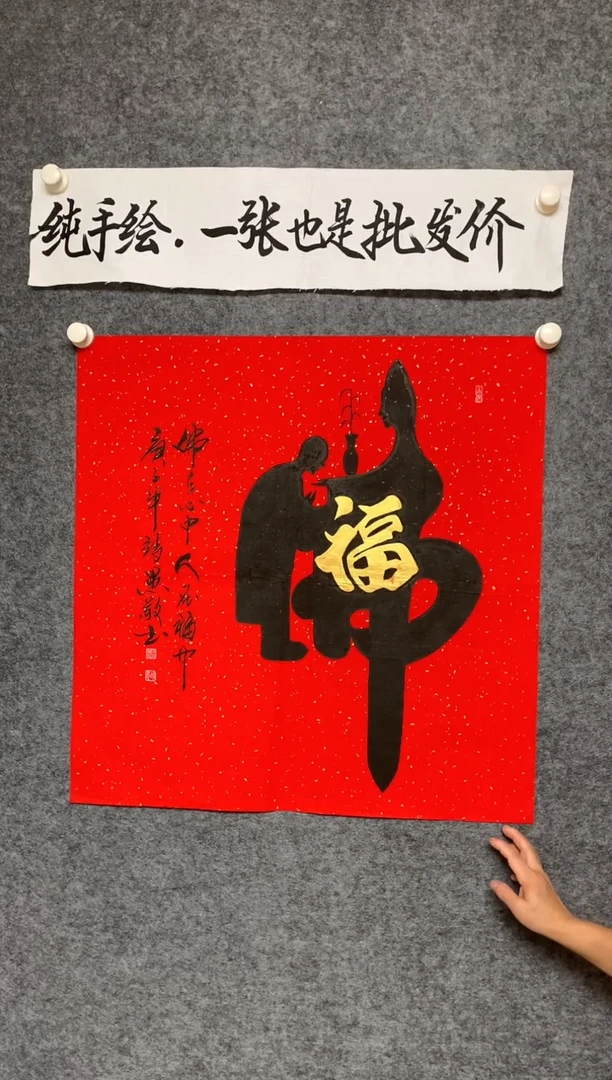 纯手绘.一张也是批发价
佛
福
佛在心中人居福中
庚子年 敬书